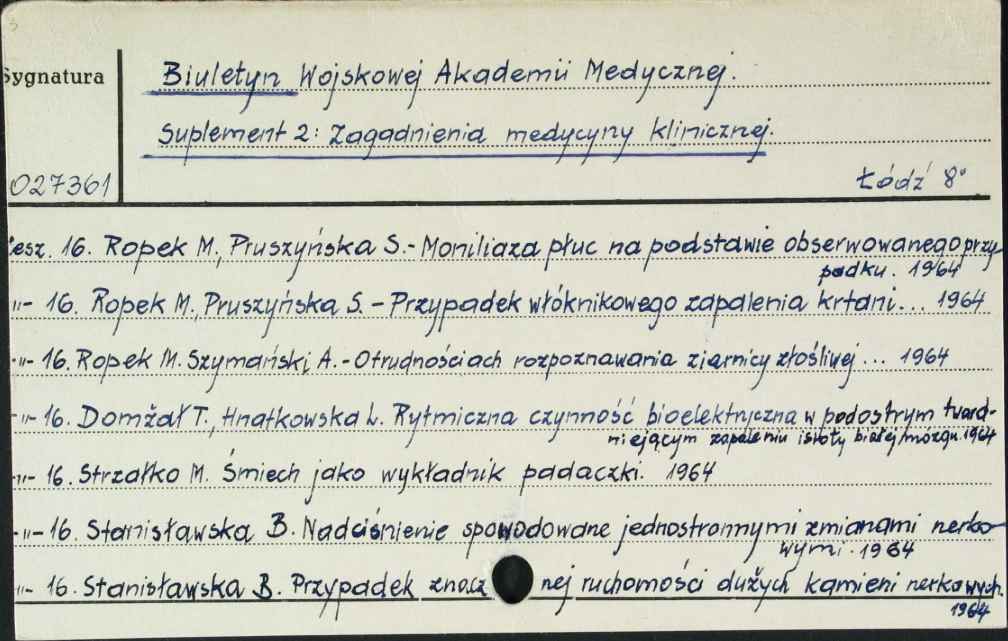 Sygnatura
Biuletyn Wojskowej Akademii Medycznej.
Suplement 2: Zagadnienia medycyny klinicznej.
027361
Łódź 8°
esz. 16. Ropek M., Pruszyńska S.- Moniliaza płuc na podstawie obserwowanego przy-
padku. 1964
-„- 16. Ropek M., Pruszyńska S. - Przypadek włóknikowego zapalenia krtani... 1964
-„- 16. Ropek M. Szymański A. - O trudnościach rozpoznawania ziarnicy złośliwej ... 1964
-„- 16. Domżał T., Hnatkowska L. Rytmiczna czynność bioelektryczna w podostrym tward-
niejącym zapaleniu istoty białej mózgu. 1964
-„- 16. Strzałko M. Śmiech jako wykładnik padaczki. 1964
-„- 16. Stanisławska B. Nadciśnienie spowodowane jednostronnymi zmianami nerko-
wymi. 1964
-„- 16. Stanisławska B. Przypadek znacz nej ruchomości dużych kamieni nerkowych.
1964